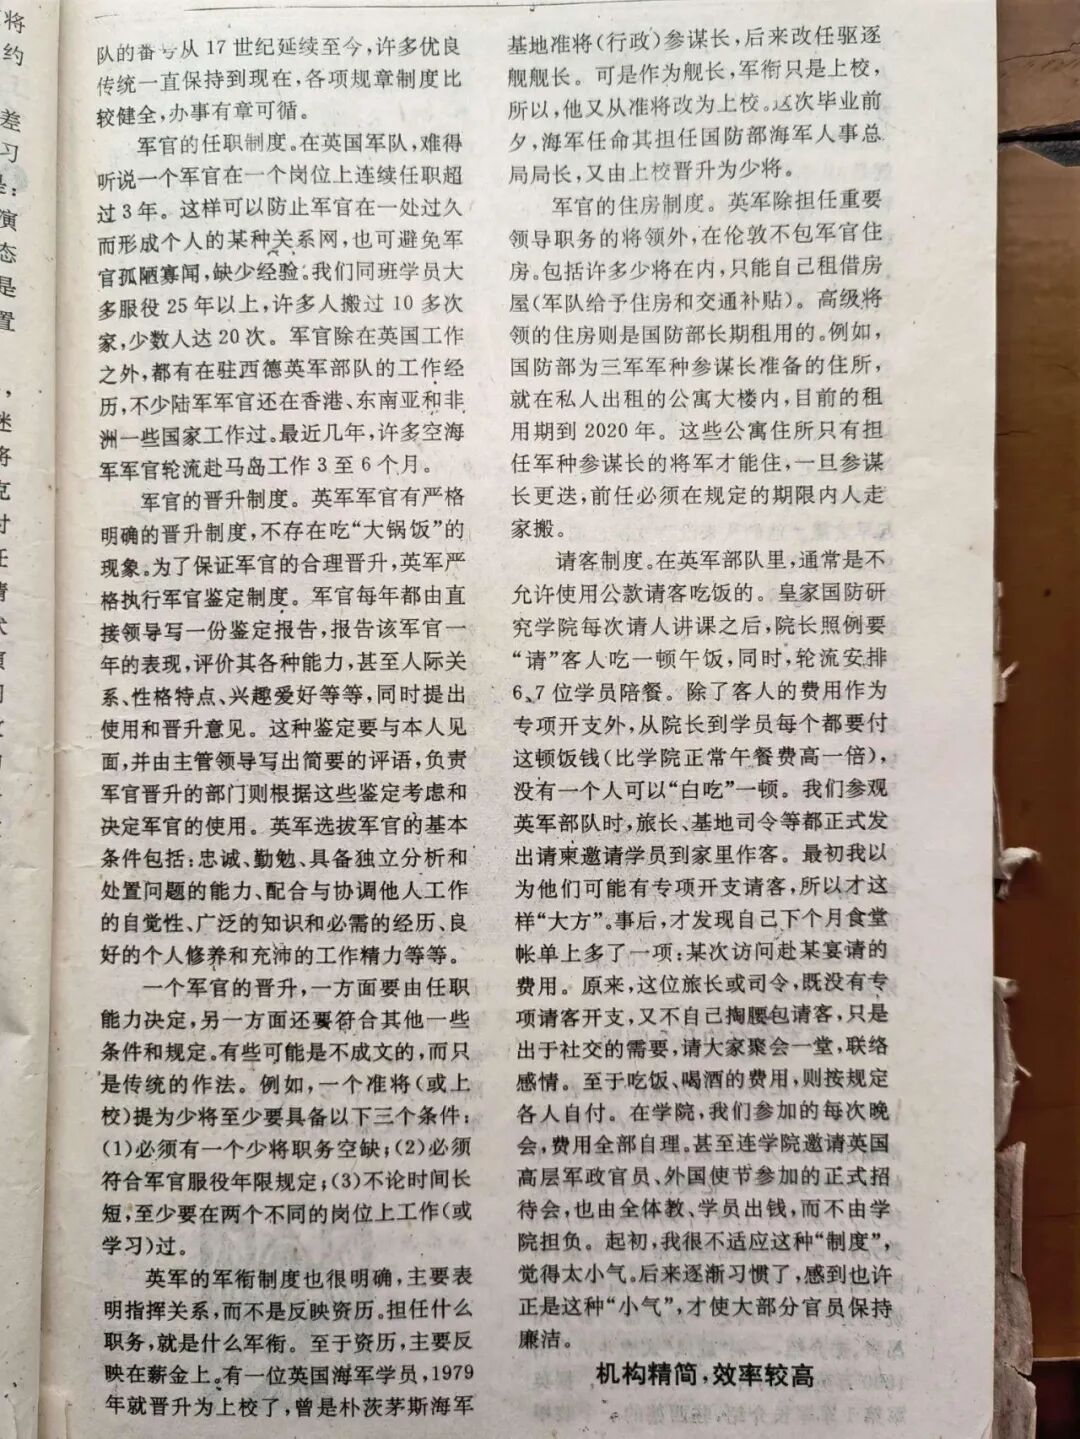 将
约
差
习
演
态
是
置
队的番号从17世纪延续至今，许多优良
传统一直保持到现在，各项规章制度比
较健全，办事有章可循。
军官的任职制度。在英国军队，难得
听说一个军官在一个岗位上连续任职超
过3年。这样可以防止军官在一处过久
而形成个人的某种关系网，也可避免军
官孤陋寡闻，缺少经验。我们同班学员大
多服役25年以上，许多人搬过10多次
家，少数人达20次。军官除在英国工作
之外，都有在驻西德英军部队的工作经
历，不少陆军军官还在香港、东南亚和非
洲一些国家工作过。最近几年，许多空海
军军官轮流赴马岛工作3至6个月。
军官的晋升制度。英军军官有严格
明确的晋升制度，不存在吃“大锅饭”的
现象。为了保证军官的合理晋升，英军严
格执行军官鉴定制度。军官每年都由直
接领导写一份鉴定报告，报告该军官一
年的表现，评价其各种能力，甚至人际关
系、性格特点、兴趣爱好等等，同时提出
使用和晋升意见。这种鉴定要与本人见
面，并由主管领导写出简要的评语，负责
军官晋升的部门则根据这些鉴定考虑和
决定军官的使用。英军选拔军官的基本
条件包括：忠诚、勤勉、具备独立分析和
处置问题的能力、配合与协调他人工作
的自觉性、广泛的知识和必需的经历、良
好的个人修养和充沛的工作精力等等。
一个军官的晋升，一方面要由任职
能力决定，另一方面还要符合其他一些
条件和规定。有些可能是不成文的，而只
是传统的作法。例如，一个准将（或上
校）提为少将至少要具备以下三个条件：
(1)必须有一个少将职务空缺；(2)必须
符合军官服役年限规定；(3)不论时间长
短，至少要在两个不同的岗位上工作（或
学习）过。
英军的军衔制度也很明确，主要表
明指挥关系，而不是反映资历。担任什么
职务，就是什么军衔。至于资历，主要反
映在薪金上。有一位英国海军学员，1979
年就晋升为上校了，曾是朴茨茅斯海军
基地准将（行政）参谋长，后来改任驱逐
舰舰长。可是作为舰长，军衔只是上校，
所以，他又从准将改为上校。这次毕业前
夕，海军任命其担任国防部海军人事总
局局长，又由上校晋升为少将。
军官的住房制度。英军除担任重要
领导职务的将领外，在伦敦不包军官住
房。包括许多少将在内，只能自己租借房
屋（军队给予住房和交通补贴）。高级将
领的住房则是国防部长期租用的。例如，
国防部为三军军种参谋长准备的住所，
就在私人出租的公寓大楼内，目前的租
用期到2020年。这些公寓住所只有担
任军种参谋长的将军才能住，一旦参谋
长更迭，前任必须在规定的期限内人走
家搬。
请客制度。在英军部队里，通常是不
允许使用公款请客吃饭的。皇家国防研
究学院每次请人讲课之后，院长照例要
“请”客人吃一顿午饭，同时，轮流安排
6、7位学员陪餐。除了客人的费用作为
专项开支外，从院长到学员每个都要付
这顿饭钱（比学院正常午餐费高一倍），
没有一个人可以“白吃”一顿。我们参观
英军部队时，旅长、基地司令等都正式发
出请柬邀请学员到家里作客。最初我以
为他们可能有专项开支请客，所以才这
样“大方”。事后，才发现自己下个月食堂
帐单上多了一项：某次访问赴某宴请的
费用。原来，这位旅长或司令，既没有专
项请客开支，又不自己掏腰包请客，只是
出于社交的需要，请大家聚会一堂，联络
感情。至于吃饭、喝酒的费用，则按规定
各人自付。在学院，我们参加的每次晚
会，费用全部自理。甚至连学院邀请英国
高层军政官员、外国使节参加的正式招
待会，也由全体教、学员出钱，而不由学
院担负。起初，我很不适应这种“制度”，
觉得太小气。后来逐渐习惯了，感到也许
正是这种“小气”，才使大部分官员保持
廉洁。
机构精简，效率较高